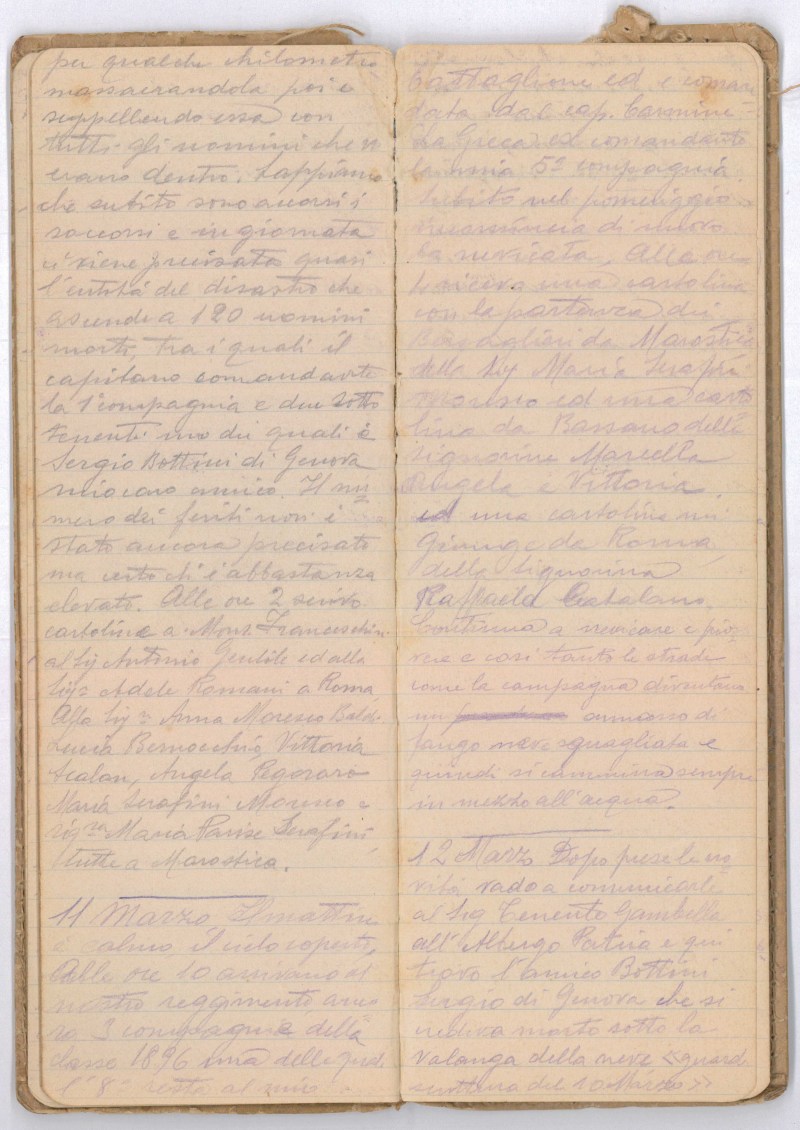 per qualche chilometro
massacrandola poi e
seppellendo essa con
tutti gli uomini che v'
erano dentro. Sappiamo
che subito sono accorsi i
soccorsi e in giornata
ci viene precisata quasi
l'entità del disastro che
ascende a 120 uomini
morti, tra i quali il
capitano comandante
la 1ª compagnia e due sotto
tenenti uno dei quali è
Sergio Bottini di Genova
mio caro amico. Il nu
mero dei feriti non è
stato ancora precisato
ma certo ch'è abbastanza
elevato. Alle ore 2 scrivo
cartoline a Mons. Franceschin
al Sig Antonio Gentile ed alla
Sigª Adele Romani a Roma
Alla Sigª Anna Moresco Bald.
Lucia Bernocchio, Vittoria
Scalan, Angela Pegoraro
Maria Serafini Moresco e
Maria Parise Serafini
tutte a Marostica.
11 Marzo Il mattino
è calmo, il cielo coperto,
Alle ore 10 arrivano al
nostro reggimento anco
ra 3 compagnie della
classe 1896 una delle quali
l'8ª resta al mio
battaglione ed è coman
data dal cap. Carmine
La Greca ex comandante
la mia 5ª compagnia.
Subito nel pomeriggio
rincomincia di nuovo
la nevicata, Alle ore
ricevo una cartolina
con la partenza dei
Bersaglieri da Marostica
della Sig Maria Serafini
Moresco ed una carto
lina da Bassano delle
signorine Marcella
Angela e Vittoria
ed una cartolina mi
giunge da Roma
della Signorina
Raffaela Catalano.
Continua a nevicare e pio
vere e così tanto le strade
come la campagna diventano
un ammasso di
fango neve squagliata e
quindi si cammina sempre
in mezzo all'acqua.
12 Marzo Dopo prese le no
vità vado a comunicarle
al Sig Tenente Gambella
all'Albergo Patria e qui
trovo l'amico Bottini
Sergio di Genova che si
credeva morto sotto la
valanga della neve <<guard
scrittura del 10 Marzo>>